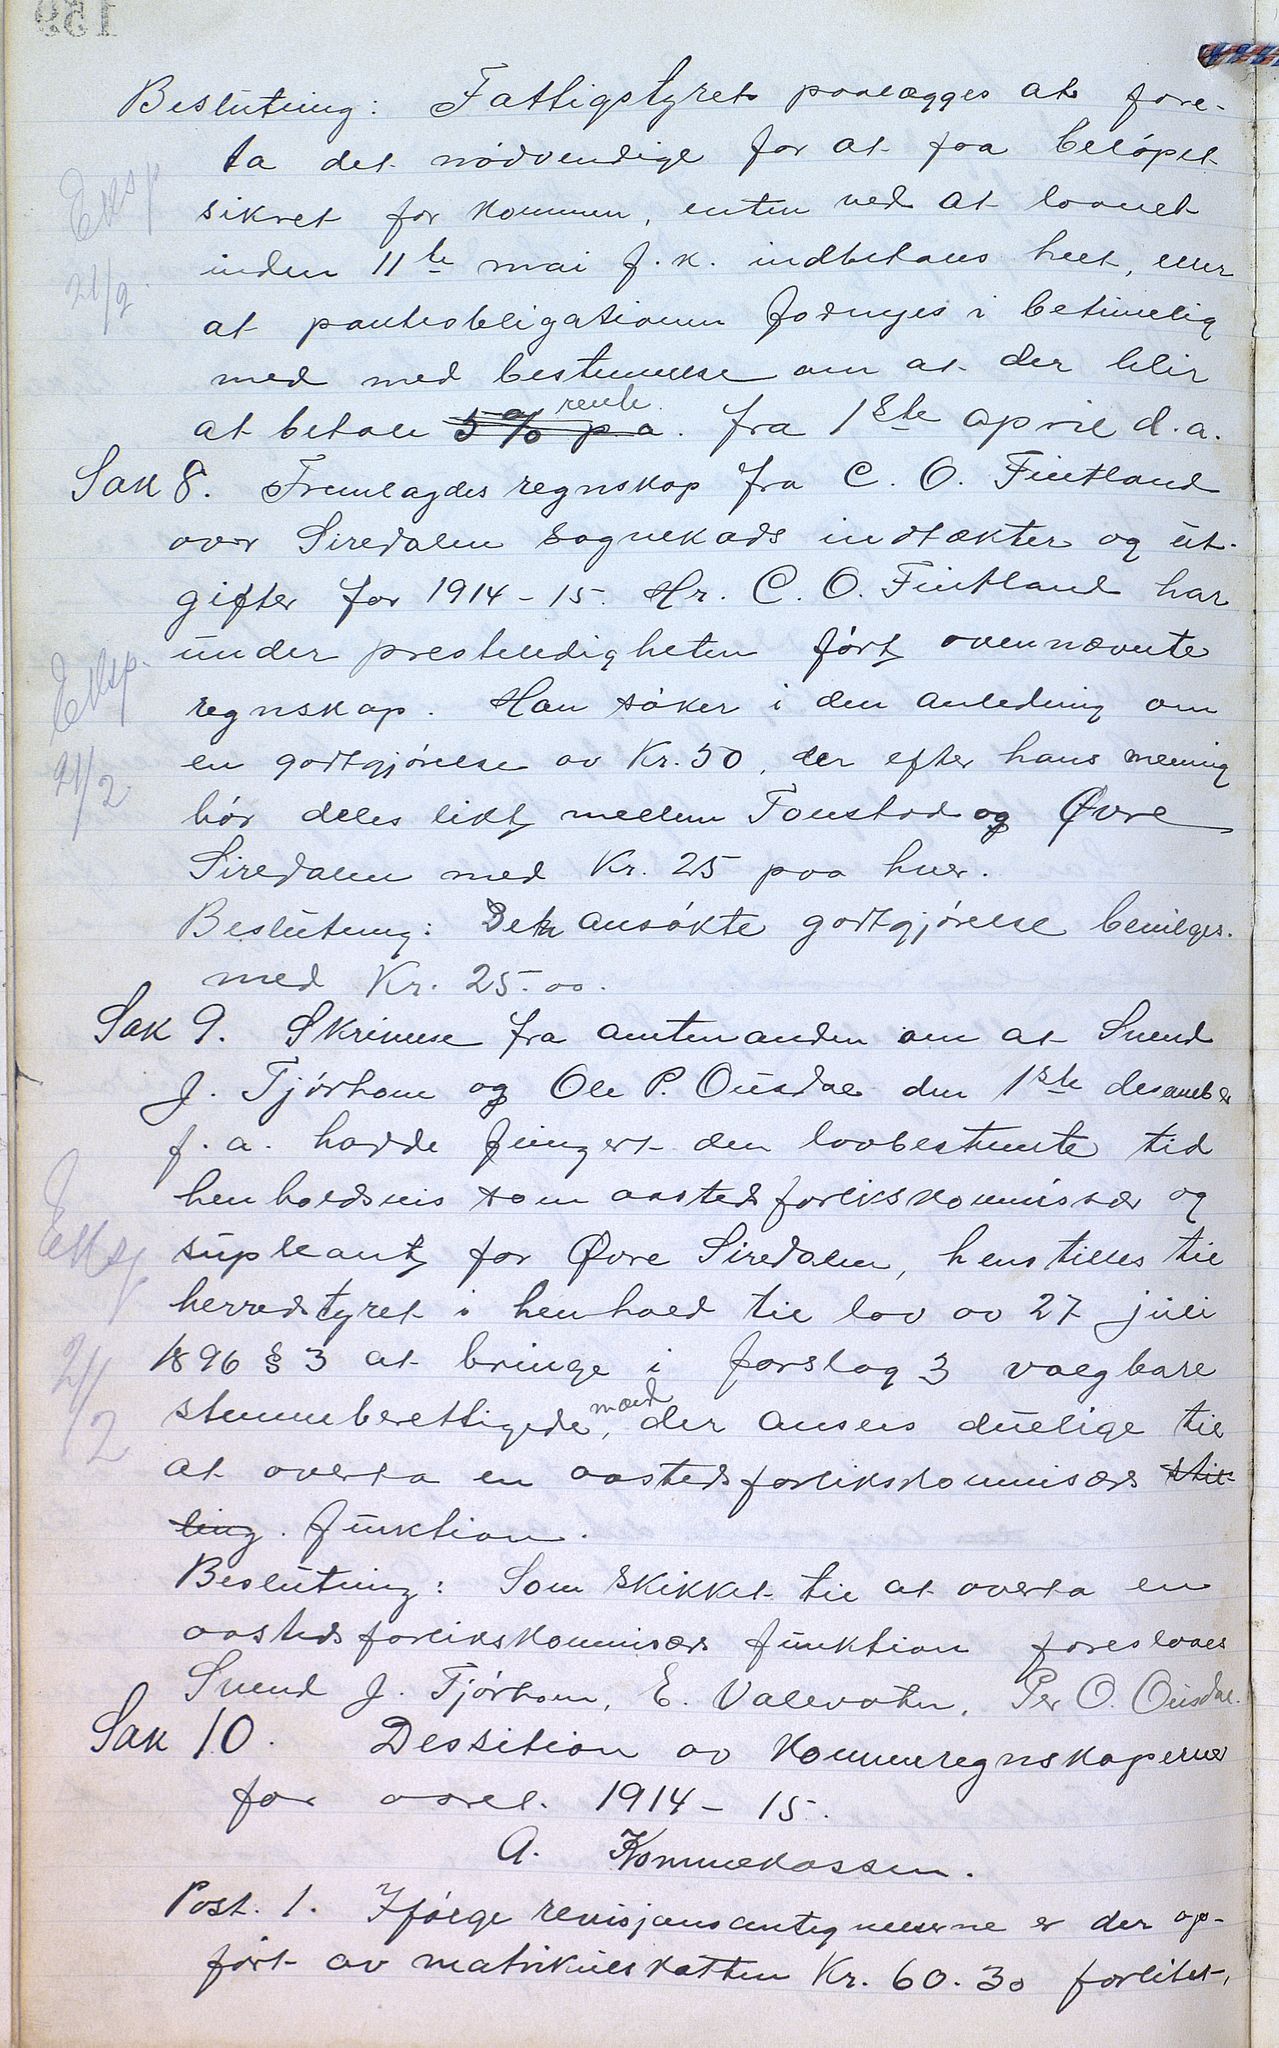 Beslutning: Fattigstyret paalægges at fore-
ta det nødvendige for at faa beløpet
sikret for kommen, enten ved at laanet
inden 11te mai f. k. indbetales helt, eller
at panteobligationen fornyes i betimelig
med med bestemmelse om at der blir
at betale 5 % p a. rente fra 1ste april d. a.
Sak 8. Fremlagdes regnskap fra C. O. Fintland
over Siredalen sognekads indtækter og ut-
gifter for 1914-15. Hr. C. O. Fintland har
under presteledigheten ført ovennævnte
regnskap. Han søker i den anledning om
en godtgjørelse av Kr. 50, der efter hans mening
bør deles likt mellem Tonstad og Øvre
Siredalen med Kr. 25 paa hver.
Beslutning: Den ansøkte godtgjørelse bevilges
med Kr. 25.00.
Sak 9. Skrivelse fra amtmanden om at Svend
J. Tjørhom og Ole P. Ousdal den 1ste desember
f. a. hadde fungert den lovbestemte tid
henholdsvis som aastedsforlikskommissær og
supleant for Øvre Siredalen, henstilles til
herredstyret i henhold til lov av 27 juli
1896 § 3 at bringe i forslag 3 valgbare
stemmeberettigede mænd, der ansees duelige til
at overta en aastedsforlikskommisærs stil-
ling. funktion.
Beslutning: Som skikket til at overta en
aastedsforlikskommisærs funktion foreslaaes
Svend J. Tjørhom, E. Valevatn, Per O. Ousdal.
Sak 10. Dessition av kommeregnskaperne
for aaret 1914-15.
A. Kommekassen.
Post. 1. Ifølge revisjonsantegnelserne er der op-
ført av matrikulskatten Kr. 60.30 forlitet,
Eksp
21/2.
Eksp.
21/2
Eksp
21/2
159